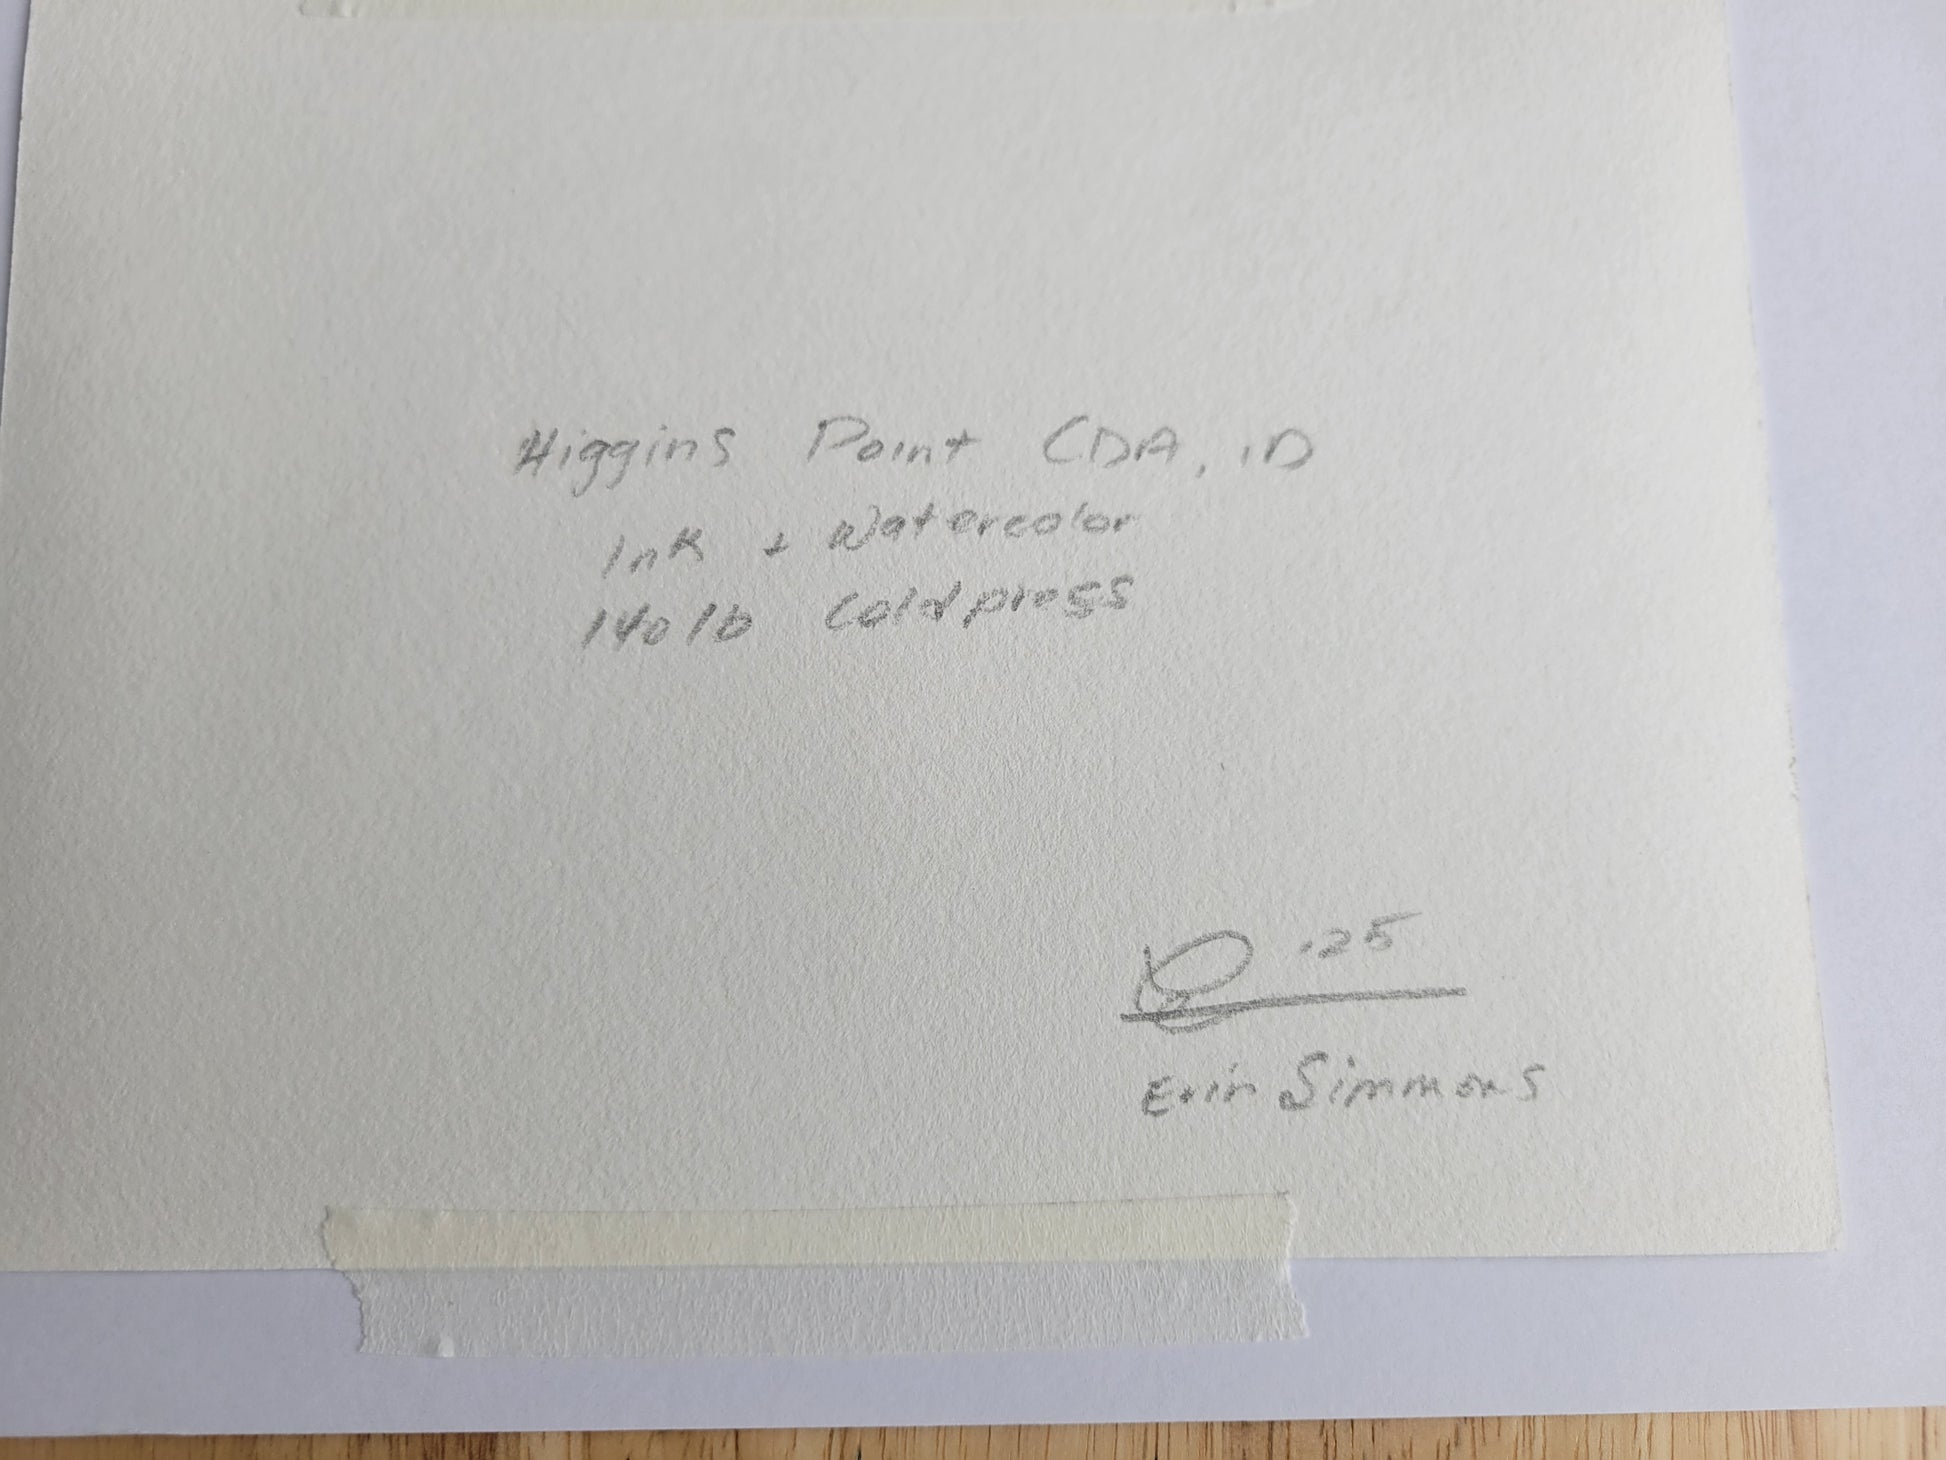 Higgins Point CDA, ID
Ink + Watercolor
140 lb Coldpress
.25
Erin Simmons